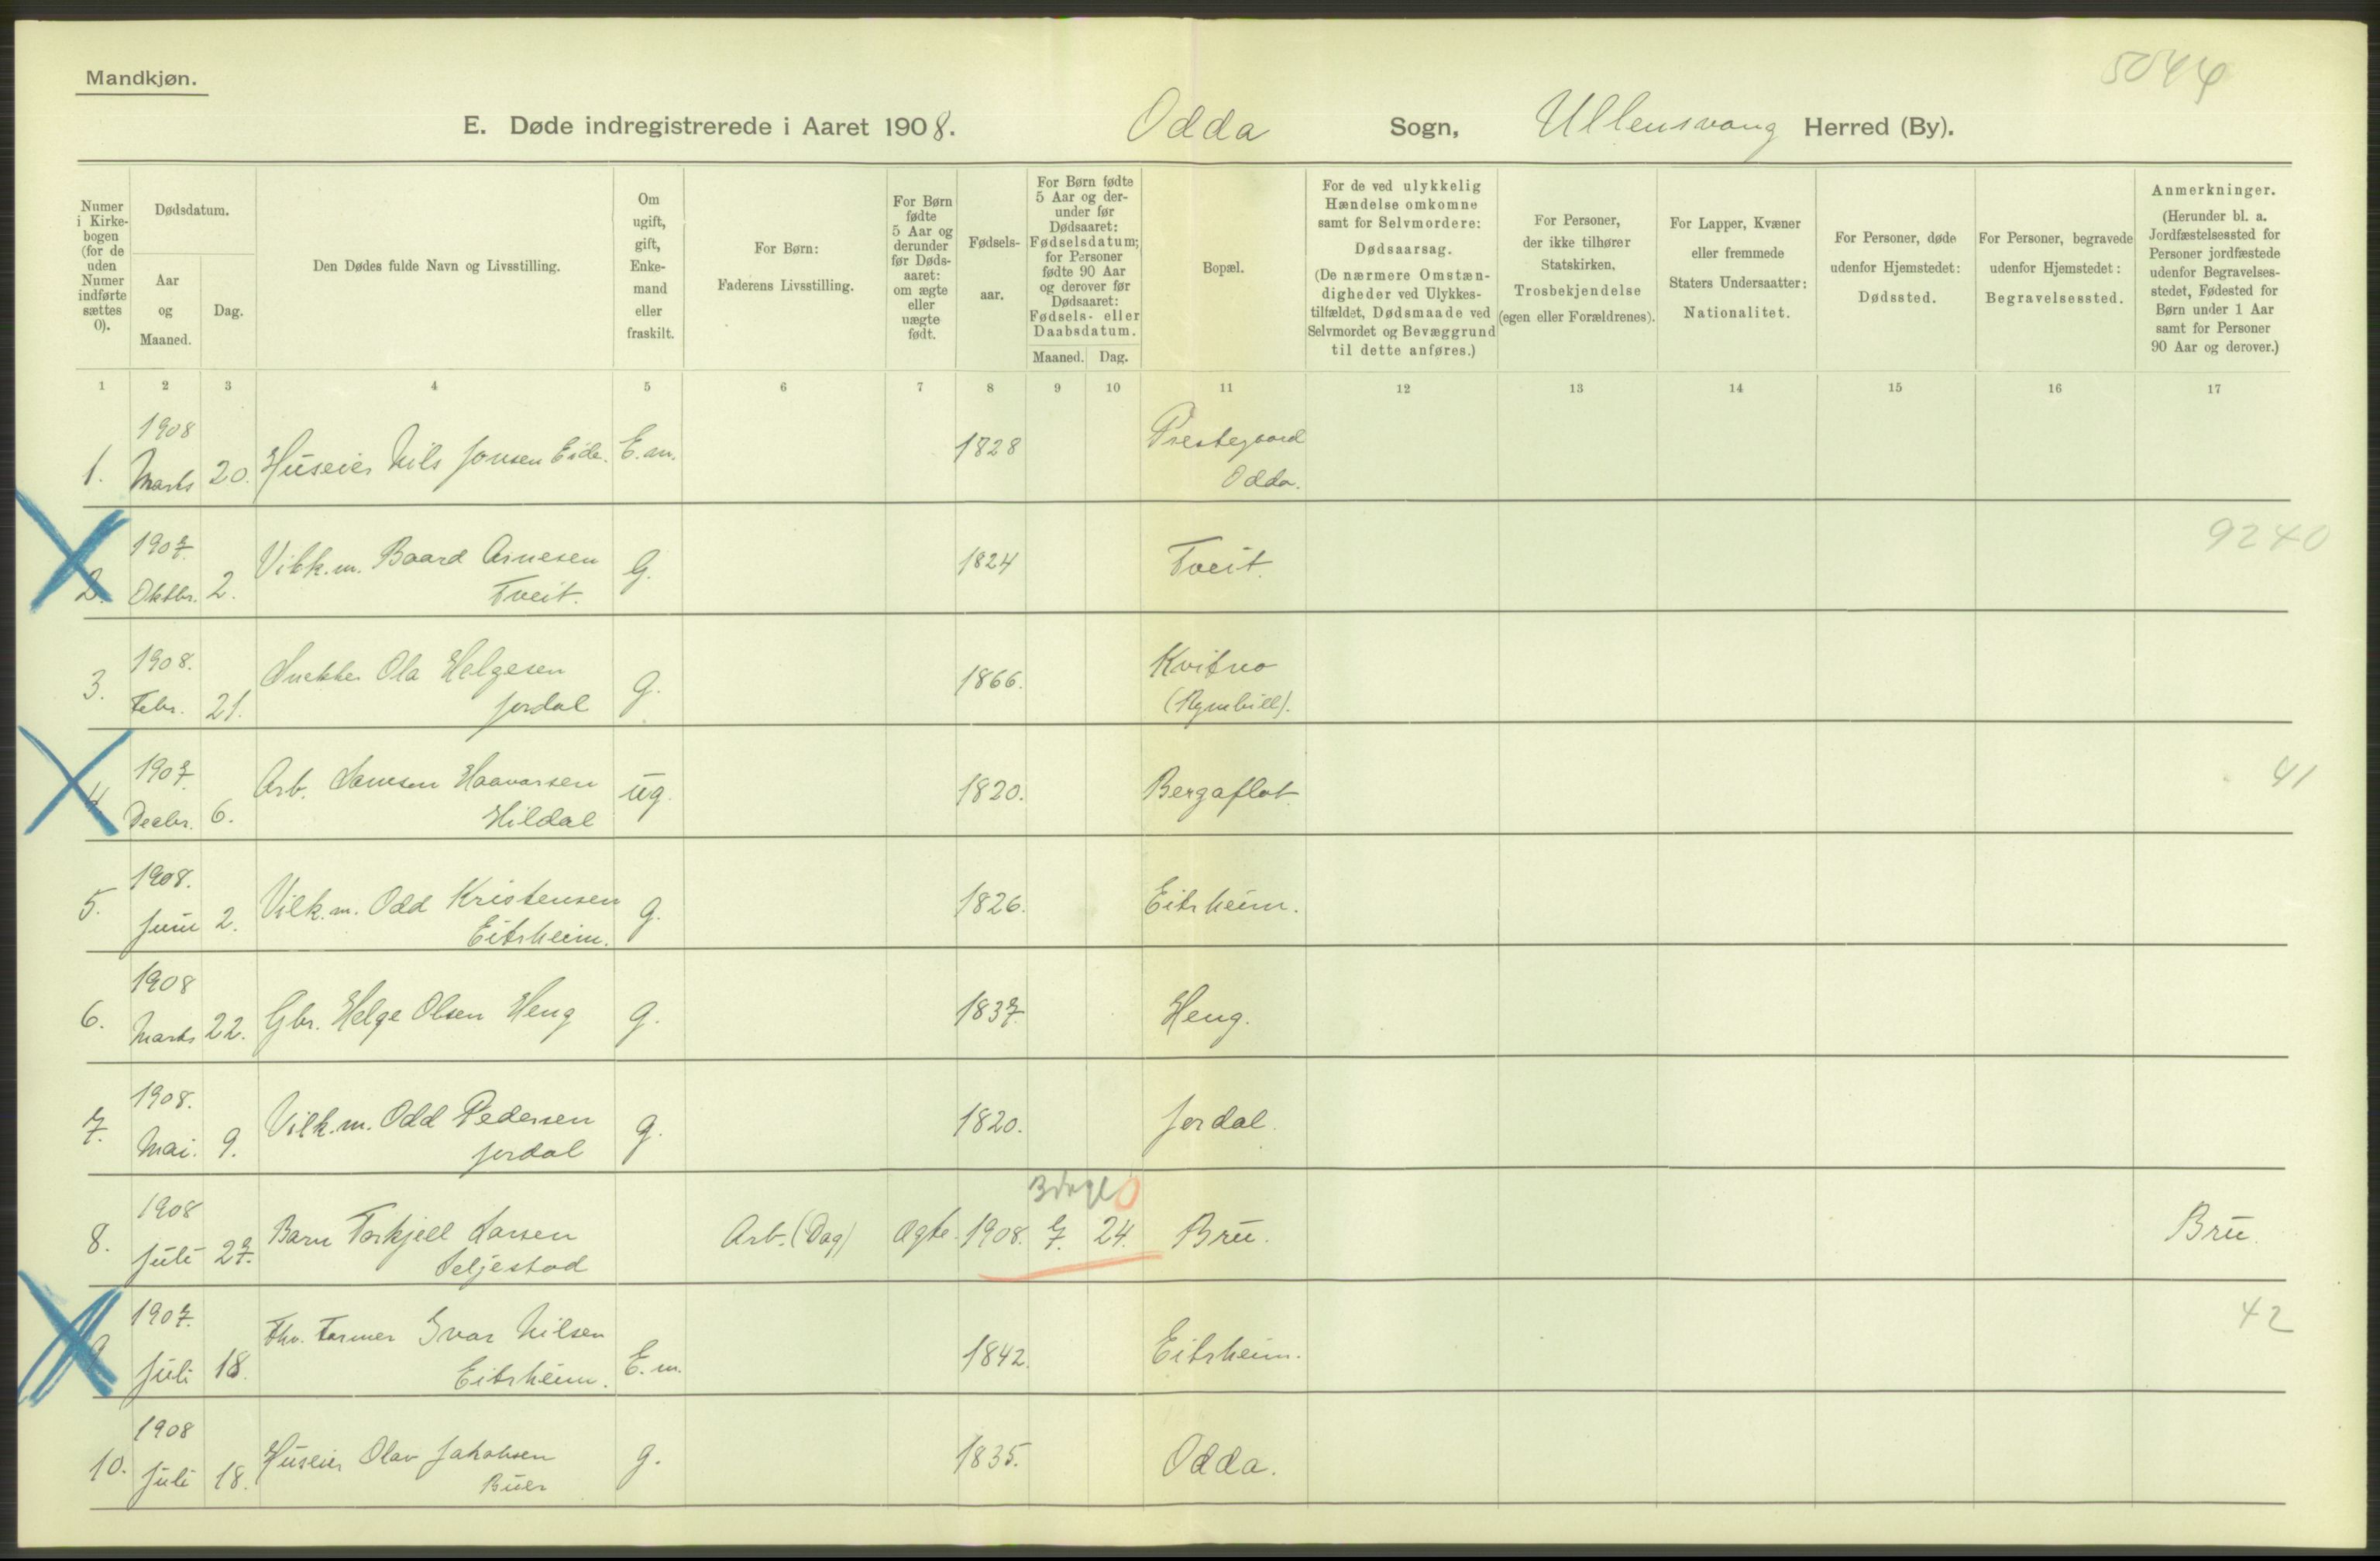 Mandkjøn.
5044
E. Døde indregistrerede i Aaret 1908. Odda Sogn, Ullensvang Herred (By).
Numer i Kirke-bogen (for de uden Numer indførte sættes 0).
Dødsdatum.
Aar og Maaned.
Dag.
Den Dødes fulde Navn og Livsstilling.
Om ugift, gift, Enke-mand eller fraskilt.
For Børn: Faderens Livsstilling.
For Børn fødte 5 Aar og derunder før Døds-aaret: om ægte eller uægte født.
Fødsels-aar.
For Børn fødte 5 Aar og der-under før Dødsaaret: Fødselsdatum; for Personer fødte 90 Aar og derover før Dødsaaret: Fødsels- eller Daabsdatum.
Maaned. Dag.
Bopæl.
For de ved ulykkelig Hændelse omkomne samt for Selvmordere: Dødsaarsag. (De nærmere Omstæn-digheder ved Ulykkes-tilfældet, Dødsmaade ved Selvmordet og Bevæggrund til dette anføres.)
For Personer, der ikke tilhører Statskirken, Trosbekjendelse (egen eller Forældrenes).
For Lapper, Kvæner eller fremmede Staters Undersaatter: Nationalitet.
For Personer, døde udenfor Hjemstedet: Dødssted.
For Personer, begravede udenfor Hjemstedet: Begravelsessted.
Anmerkninger. (Herunder bl. a. Jordfæstelsessted for Personer jordfæstede udenfor Begravelses-stedet, Fødested for Børn under 1 Aar samt for Personer 90 Aar og derover.)
1 2 3 4 5 6 7 8 9 10 11 12 13 14 15 16 17
1. 1908 Marts 20. Huseier Nils Jonsen Eide. E.m. 1828 Prestegaard Odda.
2. 1907. Oktbr. 2. Vilk.m. Baard Arnesen Tveit. G. 1824 Tveit. 9240
3. 1908. Febr. 21. Snekker Ola Helgesen Jordal g. 1866. Kvitno
4 1907. Decbr. 6. Arb. Samson Haavarsen Hildal ug. 1820. Bergaflot. 41
5. 1908. Juni 2. Vilk.m. Odd Kristensen Eitrheim. g. 1826. Eitrheim.
6. 1908 Marts 22. Gbr. Helge Olsen Heng g. 1837. Heng.
7. 1908. Mai. 9. Vilk.m. Odd Pedersen Jordal g. 1820. Jordal.
3 dage 0
8. 1908 Juli 27. Barn Torkjell Larsen Seljestad Arb. (Dag) Ægte. 1908. 7. 24. Bru. Bru.
9 1907. Juli 18. Fhv. Farmer Ivar Nilsen Eitrheim. E.m. 1842. Eitrheim. 42
10. 1908 Juli 18. Huseier Olav Jakobsen Buer g. 1835. Odda.